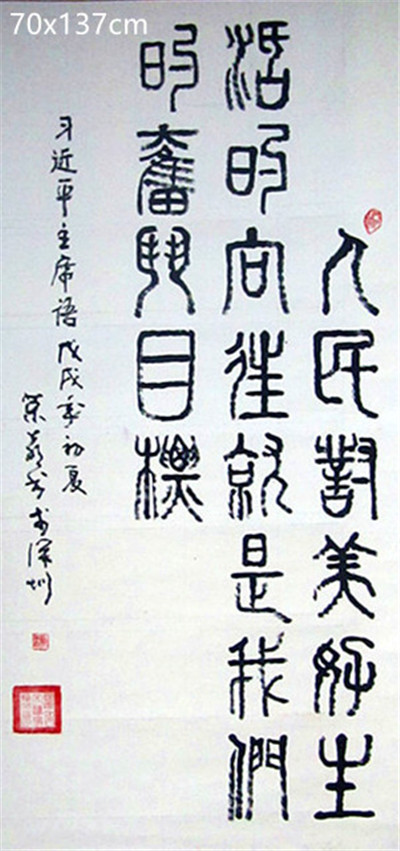 70x137cm
人民對美好生
活的向往就是我們
的奮鬥目標
习近平主席语戊戌年初夏
书于深圳